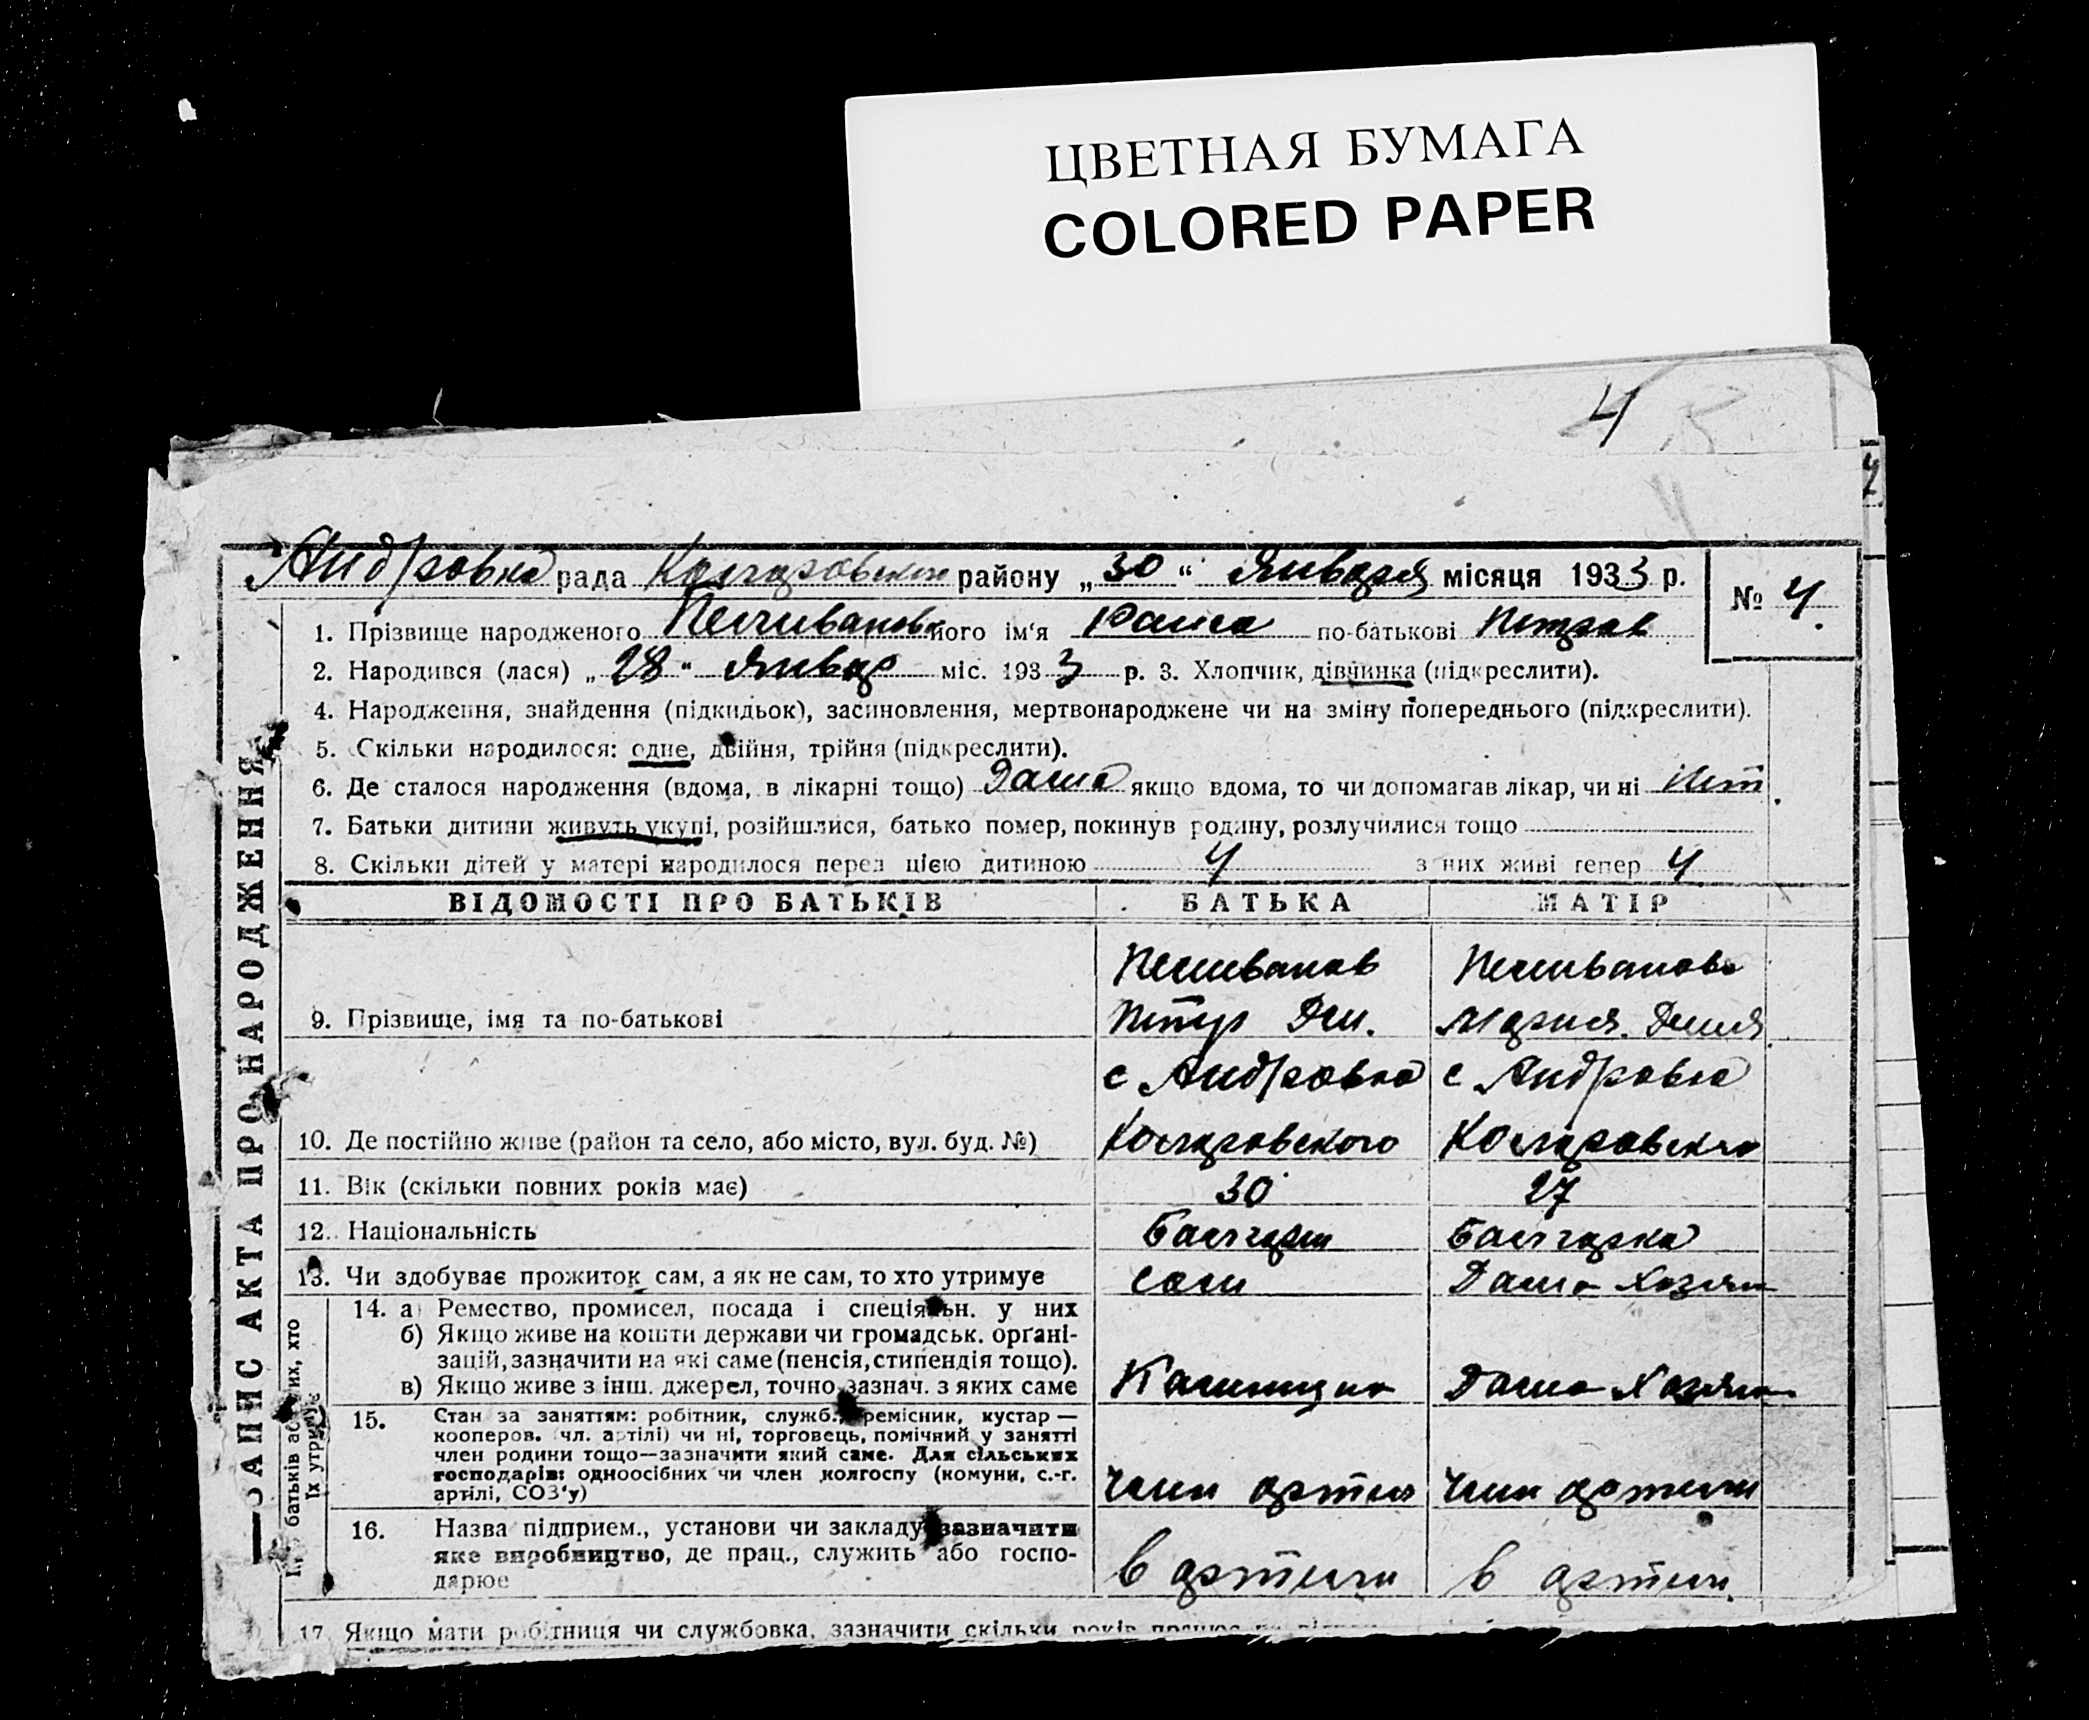 ЦВЕТНАЯ БУМАГА
COLORED PAPER
4
Андровка рада Коларовского району „30“ Января місяця 1933 р.
№ 4.
1. Прізвище народженого ного ім‘я Раиса по-батькові Петров
2. Народився (лася) „28“ Январ міс. 1933 р. 3. Хлопчик, дівчинка (підкреслити).
4. Народження, знайдення (підкидьок), засиновлення, мертвонароджене чи на зміну попереднього (підкреслити).
5. Скільки народилося: одне, двійня, трійня (підкреслити).
6. Де сталося народження (вдома, в лікарні тощо) Дома якщо вдома, то чи допомагав лікар, чи ні Нет
7. Батьки дитини живуть укупі, розійшлися, батько помер, покинув родину, розлучилися тощо
8. Скільки дітей у матері народилося перед цією дитиною 4 з них живі тепер 4
ВІДОМОСТІ ПРО БАТЬКІВ БАТЬКА МАТІР
9. Прізвище, імя та по-батькові Петр Мария
с Андровка с Андровка
10. Де постійно живе (район та село, або місто, вул. буд. №) Коларовского Коларовского
11. Вік (скільки повних років має) 30 27
12. Національність Болгарин Болгарка
13. Чи здобуває прожиток сам, а як не сам, то хто утримує сам Домо хозяи
14. а) Ремество, промисел, посада і спеціяльн. у них
б) Якщо живе на кошти держави чи громадськ. орґані-
зацій, зазначити на які саме (пенсія, стипендія тощо).
в) Якщо живе з інш. джерел, точно зазнач. з яких саме Домо Хозяи
15. Стан за заняттям: робітник, служб., ремісник, кустар —
кооперов. (чл. артілі) чи ні, торговець, помічний у занятті
член родини тощо—зазначити який саме. Для сільських
господарів: одноосібних чи член колгоспу (комуни, с.-г.
артілі, СОЗ‘у) член артел член артели
16. Назва підприєм., установи чи закладу зазначити
яке виробництво, де прац., служить або госпо-
дарює в артели в артели
17 Якщо мати робітниця чи службовка, зазначити скільки років працює
ЗАПИС АКТА ПРО НАРОДЖЕННЯ